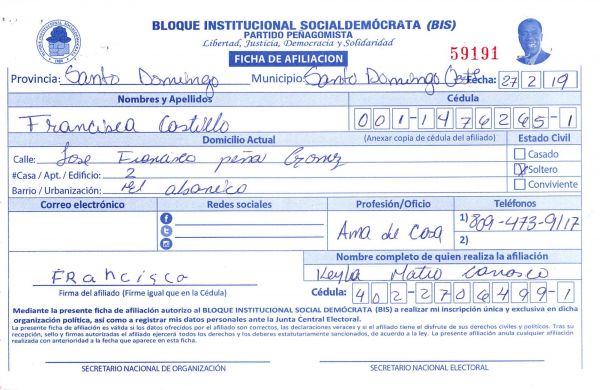 BLOQUE INSTITUCIONAL SOCIALDEMÓCRATA (BIS)
PARTIDO PEÑAGOMISTA
Libertad, Justicia, Democracia y Solidaridad
FICHA DE AFILIACION
59191
Provincia: Santo Domingo Municipio: Santo Domingo Oeste Fecha: 27 2 19
Nombres y Apellidos Cédula
Francisca Castillo 001-1476265-1
Domicilio Actual (Anexar copia de cédula del afiliado) Estado Civil
Calle: Jose Francisco peña Gomez
Casado
#Casa / Apt. / Edificio: 2
Soltero
Barrio / Urbanización: El abanico
Conviviente
Correo electrónico Redes sociales Profesión/Oficio Teléfonos
Ama de Casa
1) 809-473-9117
2)
Nombre completo de quien realiza la afiliación
Francisca Keyla Mateo Carrasco
Firma del afiliado (Firme igual que en la Cédula) Cédula: 402-2706499-1
Mediante la presente ficha de afiliación autorizo al BLOQUE INSTITUCIONAL SOCIAL DEMÓCRATA (BIS) a realizar mi inscripción única y exclusiva en dicha
organización política, así como a registrar mis datos personales ante la Junta Central Electoral.
La presente ficha de afiliación es válida si los datos ofrecidos por el afiliado son correctos, las declaraciones veraces y si el afiliado tiene el disfrute de sus derechos civiles y políticos. Tras su
recepción, sello y firmas autorizadas el afiliado ejercerá todos los derechos y los deberes estatutariamente sancionados, de acuerdo a la ley. La presente afiliación anula cualquier afiliación
realizada con anterioridad a la fecha que aparece en esta ficha.
SECRETARIO NACIONAL DE ORGANIZACIÓN SECRETARIO NACIONAL ELECTORAL